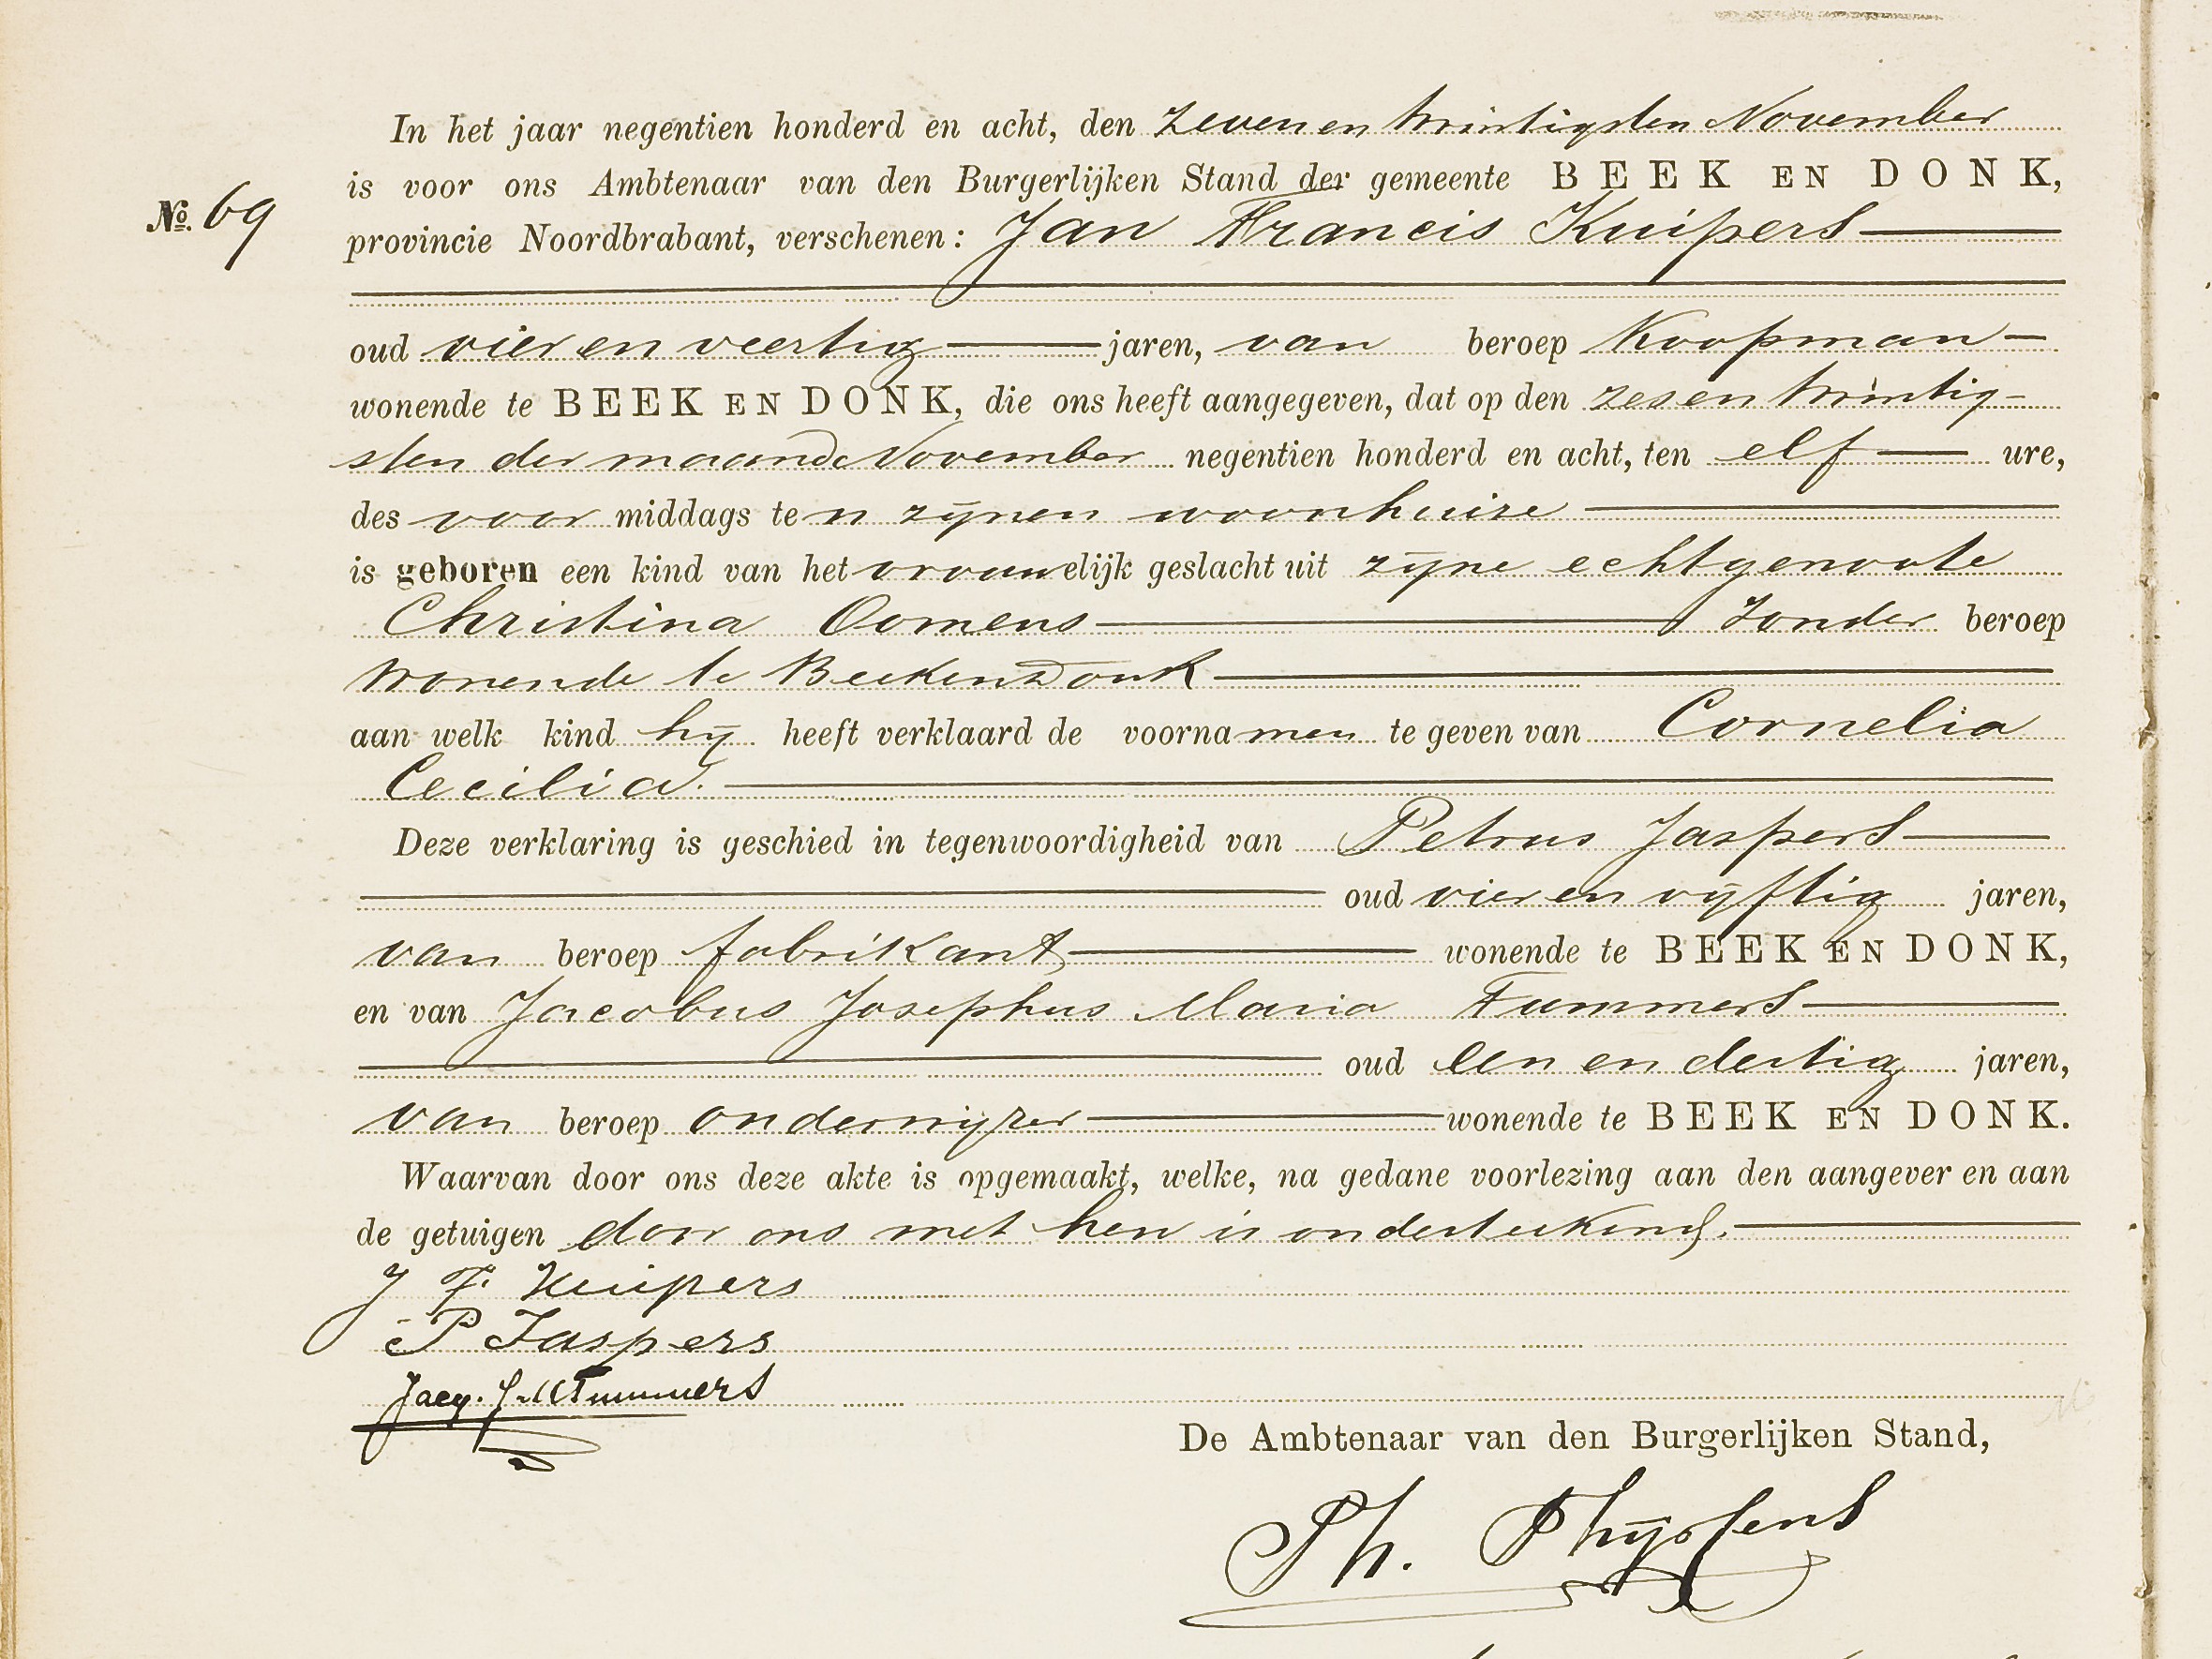 In het jaar negentien honderd en acht, den zeven en twintigsten November
is voor ons Ambtenaar van den Burgerlijken Stand der gemeente BEEK EN DONK,
№. 69
provincie Noordbrabant, verschenen: Jan Francis Kuipers
oud vier en veertig jaren, van beroep Koopman
wonende te BEEK EN DONK, die ons heeft aangegeven, dat op den zes en twintig-
sten der maand November negentien honderd en acht, ten elf ure,
des voor middags te n zijnen woonhuize
is geboren een kind van het vrouwelijk geslacht uit zijne echtgenoote
Christina Oomens zonder beroep
wonende te Beek en Donk
aan welk kind hij heeft verklaard de voornamen te geven van Cornelia
Cecilia.
Deze verklaring is geschied in tegenwoordigheid van Petrus Jaspers
oud vier en vijftig jaren,
van beroep fabrikant wonende te BEEK EN DONK,
en van Jacobus Josephus Maria Tummers
oud een en dertig jaren,
van beroep onderwijzer wonende te BEEK EN DONK.
Waarvan door ons deze akte is opgemaakt, welke, na gedane voorlezing aan den aangever en aan
de getuigen door ons met hen is onderteekend.
J F. Kuipers
P Jaspers
Jacq. J. M Tummers
De Ambtenaar van den Burgerlijken Stand,
Th. Thijssens